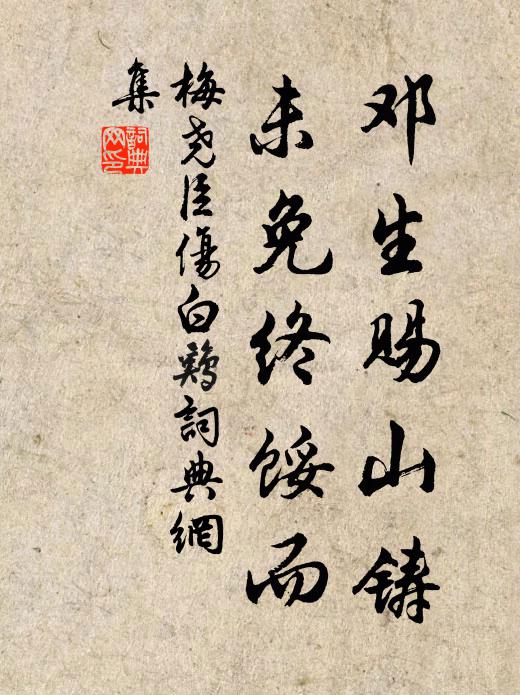 邓生赐山铸
未免终馁而
梅尧臣傷白鷄詞典網
集
詞典
网印